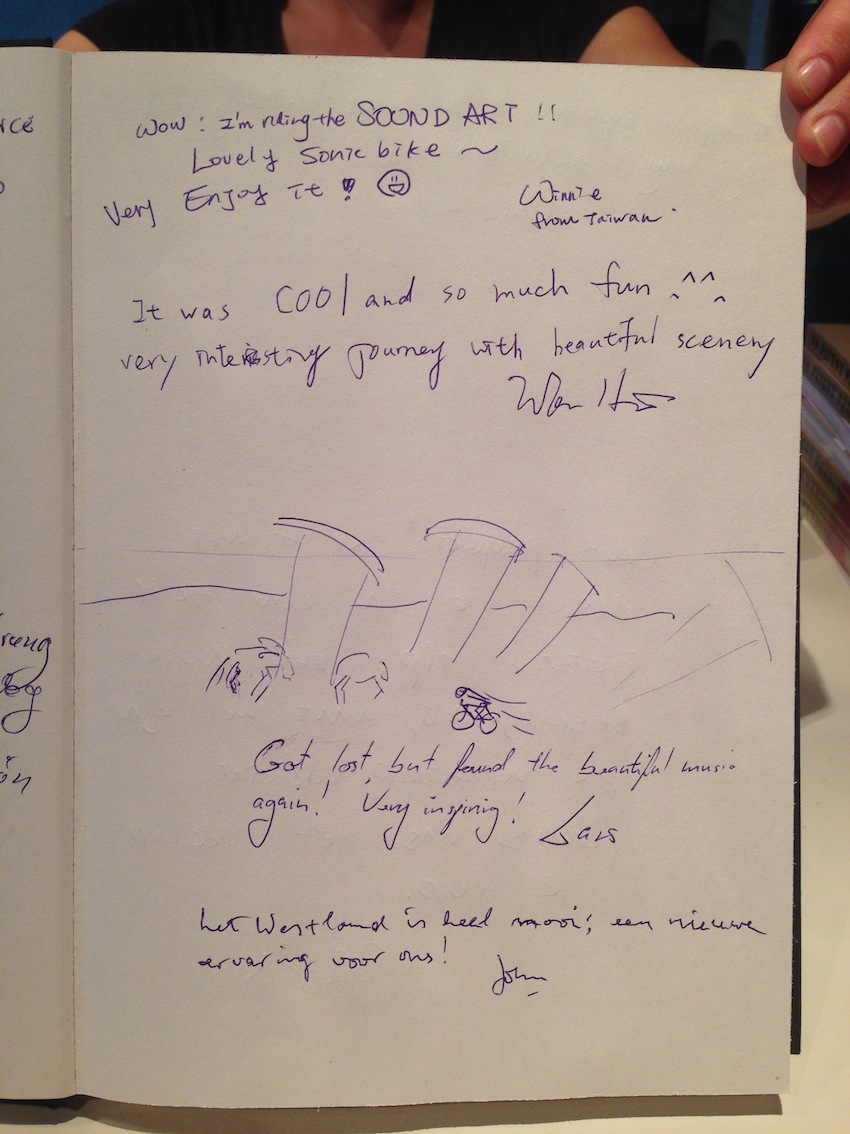 rce
Wow : I'm riding the SOUND ART !!
Lovely Sonic bike ~
Very Enjoy it !
Winnie
from Taiwan.
It was COOl and so much fun ^^
very interesting journey with beautiful scenery
Got lost, but found the beautiful music
again! Very inspiring! Lars
het Westland is heel mooi; een nieuwe
ervaring voor ons!
John